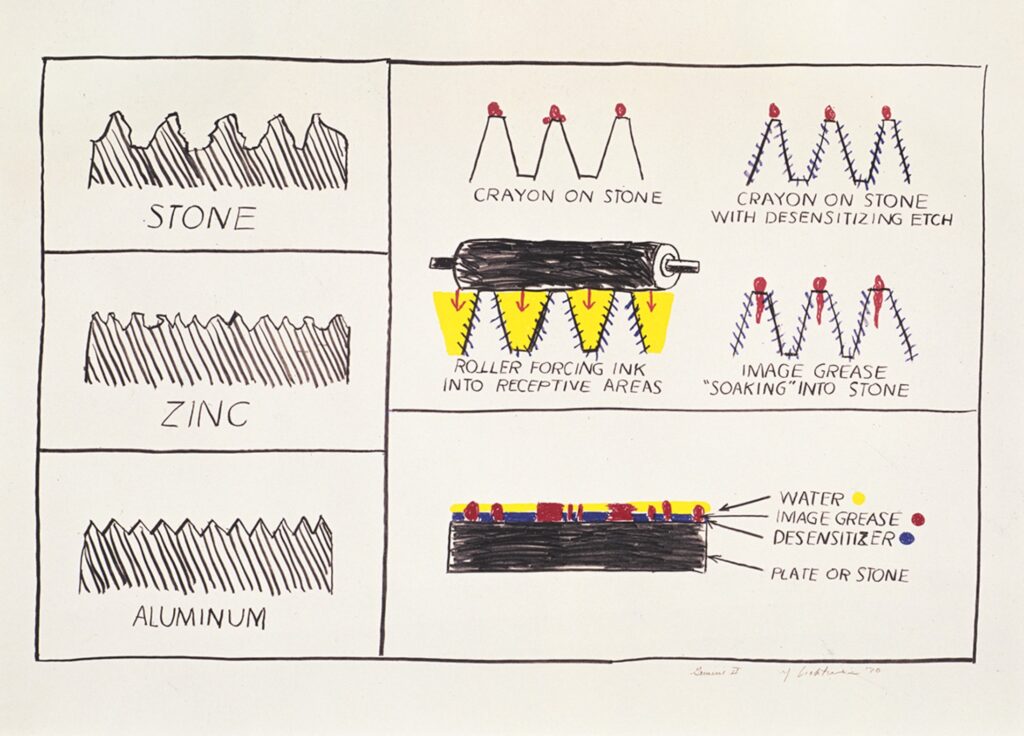 STONE
ZINC
ALUMINUM
CRAYON ON STONE
CRAYON ON STONE
WITH DESENSITIZING ETCH
ROLLER FORCING INK
INTO RECEPTIVE AREAS
IMAGE GREASE
"SOAKING" INTO STONE
WATER
IMAGE GREASE
DESENSITIZER
PLATE OR STONE
Gemini II